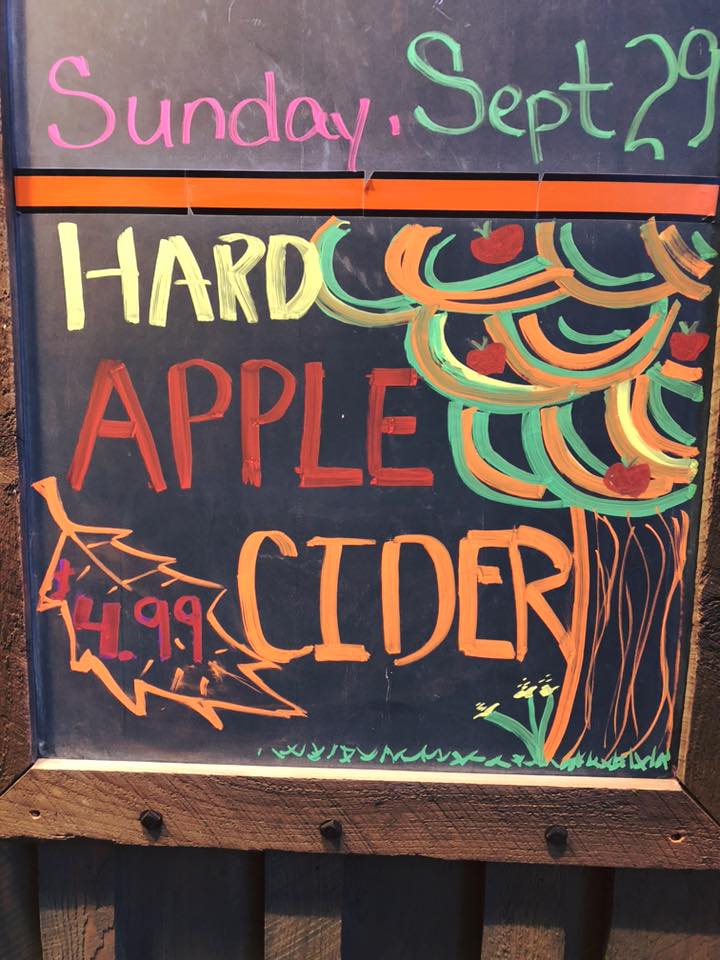 Sunday. Sept 29
HARD
APPLE
CIDER
$4.99